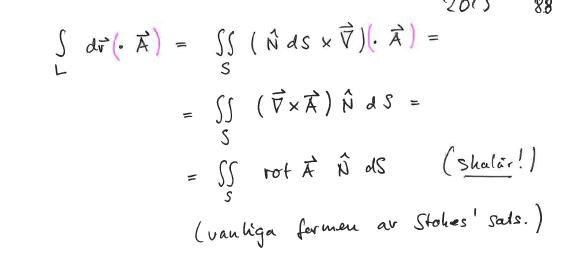 2013 88
∫_L dr⃗ (· A⃗) = ∬_S (N̂ dS × ∇⃗)(· A⃗) =
= ∬_S (∇⃗ × A⃗) N̂ dS =
= ∬_S rot A⃗ N̂ dS (skalär!)
(vanliga formen av Stokes' sats.)